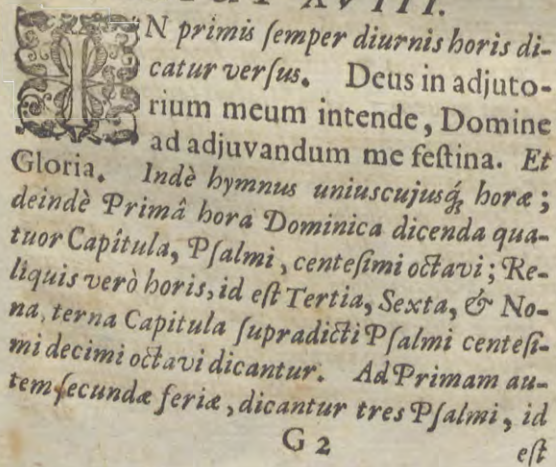 XVIII.
IN primis ſemper diurnis horis di-
catur verſus. Deus in adjuto-
rium meum intende, Domine
ad adjuvandum me feſtina. Et
Gloria. Indè hymnus uniuscujusq́; horæ;
deindè Primâ hora Dominica dicenda qua-
tuor Capîtula, Pſalmi, centeſimi octavi; Re-
liquis verò horis, id eſt Tertia, Sexta, & No-
na, terna Capitula ſupradicti Pſalmi centeſi-
mi decimi octavi dicantur. Ad Primam au-
tem ſecundæ feriæ, dicantur tres Pſalmi, id
G 2
eſt